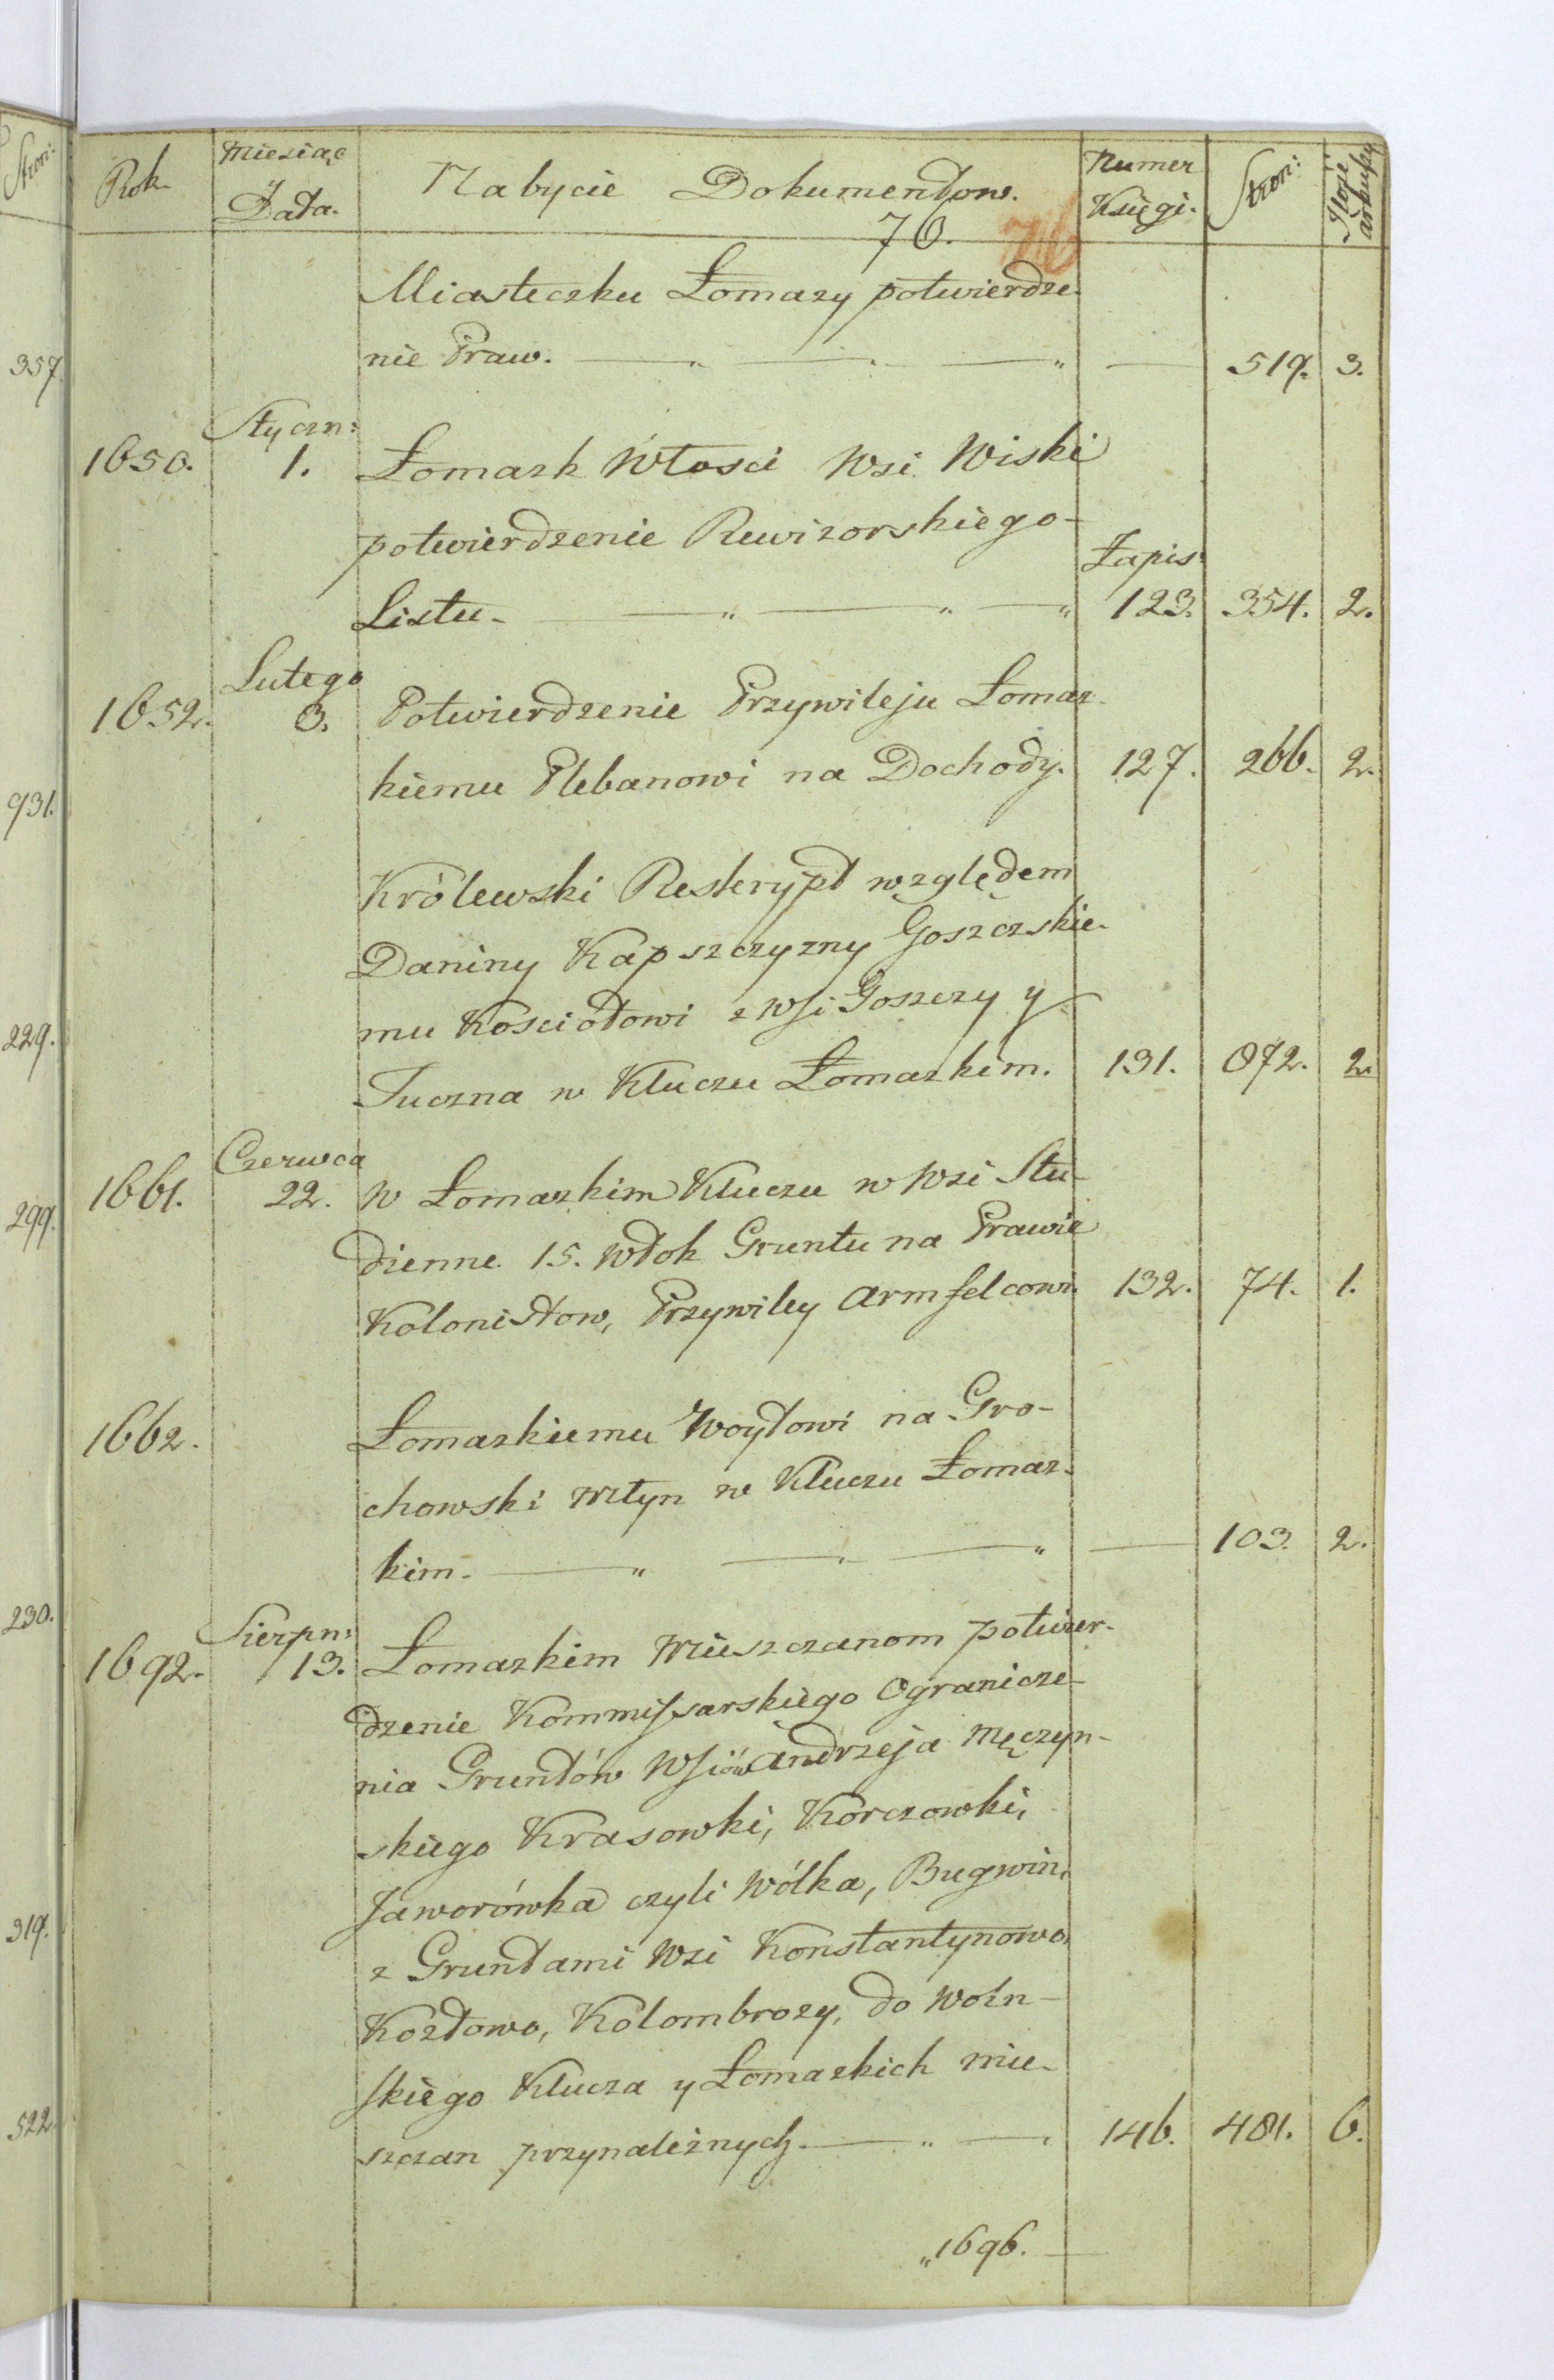 Stron:
Rok
Miesiąc
y
Data.
Nabycie Dokumentow.
Numer
Księgi.
Stron:
Ilość
arkuszy
76.
76
Miasteczku Łomazy potwierdze-
nie Praw. 519. 3.
357.
Styczn:
1650. 1. Łomazk Włosci Wsi Wiski
potwierdzenie Rewizorskiego
Zapis:
Listu 123. 354. 2.
Lutego
1652. 3. Potwierdzenie Przywileju Łomaz-
kiemu Plebanowi na Dochody. 127. 266. 2.
931.
Królewski Reskrypt względem
Daniny Kapszczyzny Goszczskie-
mu Kosciołowi z Wsi Goszczy y
229.
Tuczna w Kluczu Łomazkim. 131. 872. 2.
Czerwca
1661. 22. w Łomazkim Kluczu w Wsi Stu-
299.
dienne 15. Włok Gruntu na Prawie
Kolonistow, Przywiley Armfelcowi. 132. 74. 1.
1662. Łomazkiemu Woytowi na Gro-
chowski Młyn w Kluczu Łomaz-
kim. 103. 2.
230.
Sierpn:
1692. 13. Łomazkim Mieszczanom potwier-
dzenie Kommissarskiego Ogranicze-
nia Gruntów Wsiów Andrzeja Męczyn-
skiego Krasowki, Korczowki,
Jaworówka czyli Wólka, Bugwin,
319.
z Gruntami Wsi Konstantynowo,
Kozłowo, Kolombrozy, do Woln-
skiego Klucza y Łomazkich mie-
522.
szczan przynależnych. 146. 481. 6.
"1696.